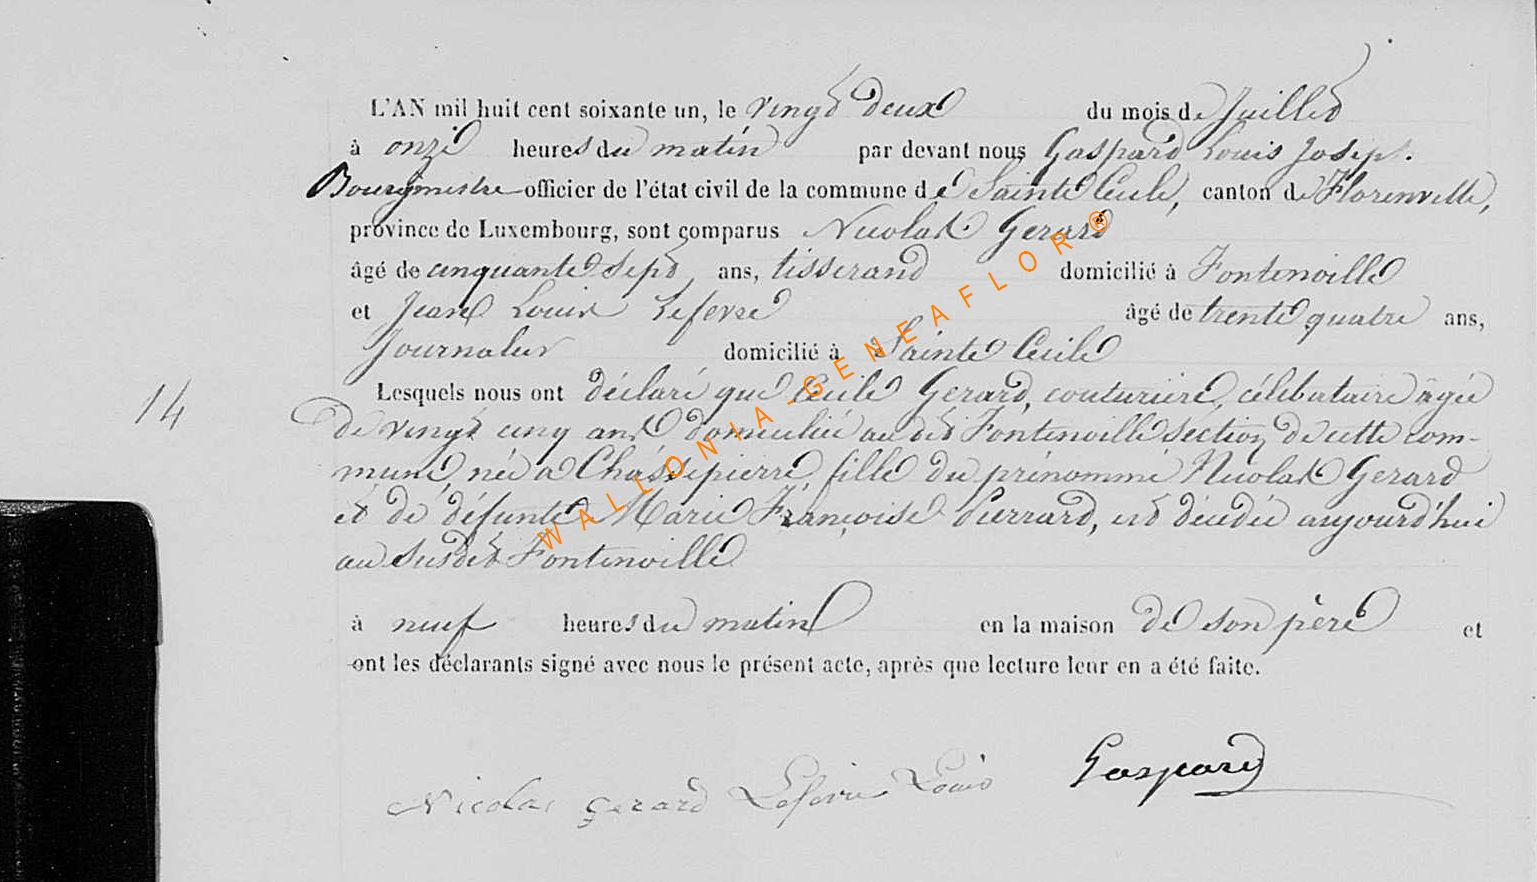 L'AN mil huit cent soixante un, le vingt deux du mois de Juillet
à onze heures du matin par devant nous Gaspard Louis Joseph.
Bourgmestre officier de l'état civil de la commune de Sainte Cecile, canton de Florenville,
province de Luxembourg, sont comparus Nicolas Gerard
âgé de cinquante sept ans, tisserand domicilié à Fontenoille
et Jean Louis Lefevre âgé de trente quatre ans,
Journalier domicilié à Sainte Cecile
Lesquels nous ont déclaré que Cecile Gerard, couturière, célibataire âgée
14
de vingt cinq ans domiciliée au dit Fontenoille section de cette com-
mune, née a Chassepierre, fille du prénommé Nicolas Gerard
et de défunte Marie Françoise Pierrard, est décédée aujourd'hui
au susdit Fontenoille
à neuf heures du matin en la maison de son père et
ont les déclarants signé avec nous le présent acte, après que lecture leur en a été faite.
Nicolas Gerard Lefevre Louis Gaspard
WALLONIA-GENEAFLOR®